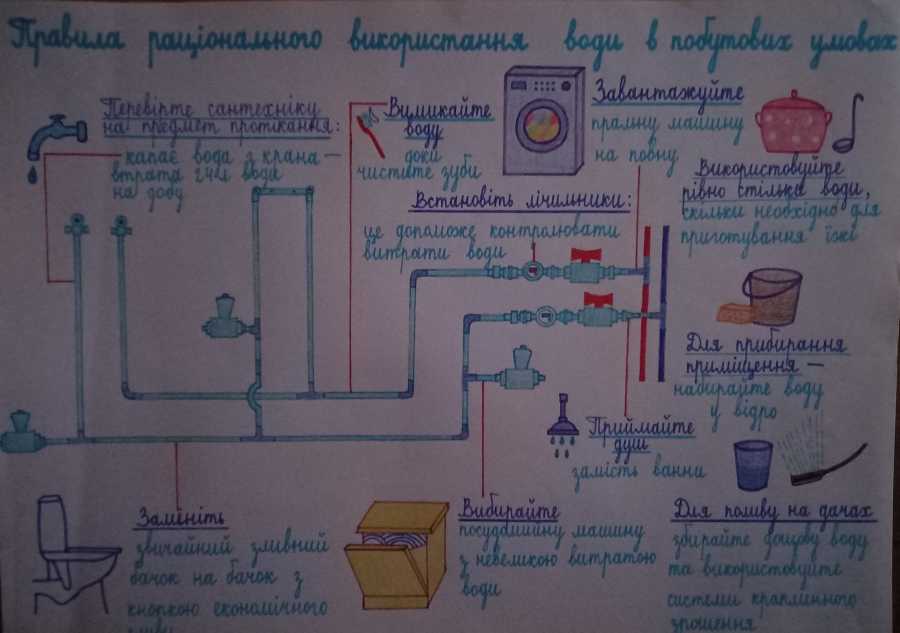 Правила раціонального використання води в побутових умовах
Перевірте сантехніку
на предмет протікання:
капає вода з крана —
втрата 24 л вода
на добу
Вимикайте
воду
доки
чистите зуби
Завантажуйте
пральну машину
на повну
Встановіть лічильники:
це допоможе контролювати
витрати води
Використовуйте
рівно стільки води,
скільки необхідно для
приготування їжі
Для прибирання
приміщення —
набирайте воду
у відро
Приймайте
душ
замість ванни
Замініть
звичайний зливний
бачок на бачок з
кнопкою економічного
Вибирайте
посудомийну машину
з невеликою витратою
води
Для поливу на дачах
збирайте дощову воду
та використовуйте
системи краплинного
зрошення